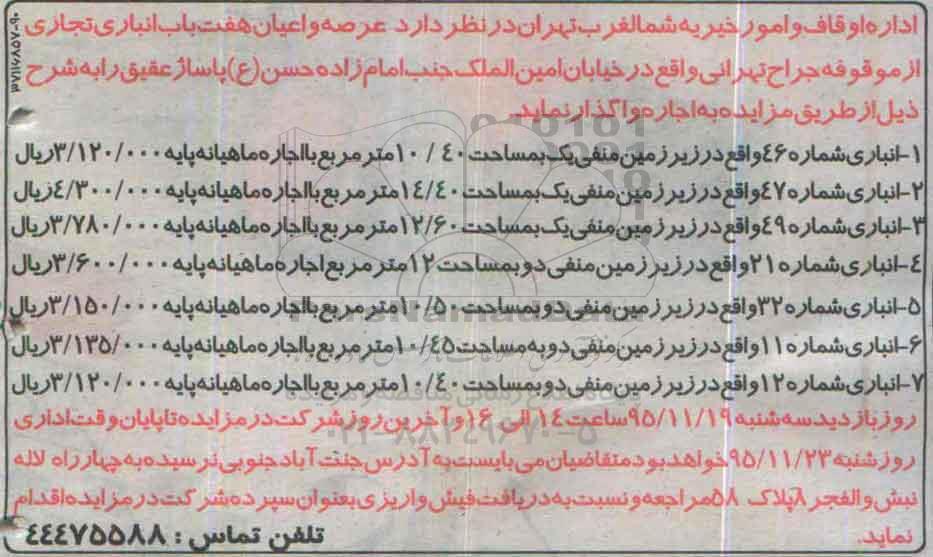 اداره اوقاف و امور خیریه شمالغرب تهران در نظر دارد عرصه و اعیان هفت باب انباری تجاری
از موقوفه جراح تهرانی واقع در خیابان امین الملک جنب امام زاده حسن (ع) پاساژ عقیق را به شرح
ذیل از طریق مزایده به اجاره واگذار نماید.
۱-انباری شماره ۴۶ واقع در زیر زمین منفی یک بمساحت ۱۰/۴۰ متر مربع با اجاره ماهیانه پایه ۳/۱۲۰/۰۰۰ ریال
۲-انباری شماره ۴۷ واقع در زیر زمین منفی یک بمساحت ۱۴/۴۰ متر مربع با اجاره ماهیانه پایه ۴/۳۰۰/۰۰۰ ریال
۳-انباری شماره ۴۹ واقع در زیر زمین منفی یک بمساحت ۱۲/۶۰ متر مربع با اجاره ماهیانه پایه ۳/۷۸۰/۰۰۰ ریال
۴-انباری شماره ۲۱ واقع در زیر زمین منفی دو بمساحت ۱۲ متر مربع اجاره ماهیانه پایه ۳/۶۰۰/۰۰۰ ریال
۵-انباری شماره ۳۲ واقع در زیر زمین منفی دو بمساحت ۱۰/۵۰ متر مربع با اجاره ماهیانه پایه ۳/۱۵۰/۰۰۰ ریال
۶-انباری شماره ۱۱ واقع در زیر زمین منفی دو به مساحت ۱۰/۴۵ متر مربع با اجاره ماهیانه پایه ۳/۱۳۵/۰۰۰ ریال
۷-انباری شماره ۱۲ واقع در زیر زمین منفی دو بمساحت ۱۰/۴۰ متر مربع با اجاره ماهیانه پایه ۳/۱۲۰/۰۰۰ ریال
روز بازدید سه شنبه ۹۵/۱۱/۱۹ ساعت ۱۴ الی ۱۶ و آخرین روز شرکت در مزایده تا پایان وقت اداری
روز شنبه ۹۵/۱۱/۲۳ خواهد بود متقاضیان می بایست به آدرس جنت آباد جنوبی نرسیده به چهار راه لاله
نبش والفجر ۸ پلاک ۵۸ مراجعه و نسبت به دریافت فیش واریزی بعنوان سپرده شرکت در مزایده اقدام
نماید.
تلفن تماس : ۴۴۴۷۵۵۸۸